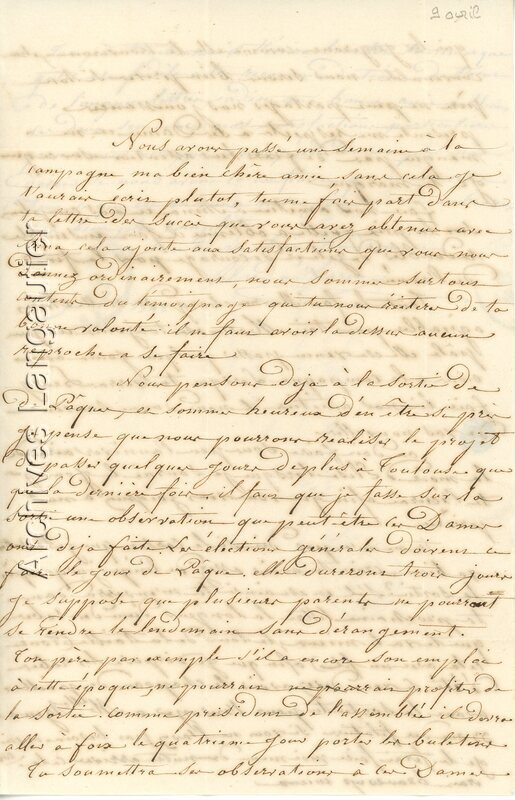 9 avril
Nous avons passé une semaine à la
campagne ma bien chère amie, sans cela je
t'aurais écris plutot, tu me fais part dans
ta lettre des succès que vous avez obtenus avec
cela ajoute aux satisfactions que vous nous
donnez ordinairement, nous sommes surtout
contens du temoignage que tu nous réitères de ta
bonne volonté. il ne faut avoir la dessus aucun
reproche a se faire
Nous pensons deja à la sortie de
Pâques, et sommes heureux d'en être si près
je pense que nous pourrons realiser le projet
de passer quelques jours de plus à Toulouse que
que la dernière fois. il faut que je fasse sur la
sortie une observation que peut être ces Dames
ont deja faite. Les elections générales doivent se
faire le jour de Pâque. elle dureront trois jours
je suppose que plusieurs parents ne pourront
se rendre le lendemain sans dérangement.
Ton père par exemple s'il a encore son emploi
à cette époque, ne pourrait ne pourrait profiter de
la sortie. comme président de l'assemblée il devra
aller à foix le quatrieme jour porter les buletins
Tu soumettra ses observations à ces Dames
Archives Langautier